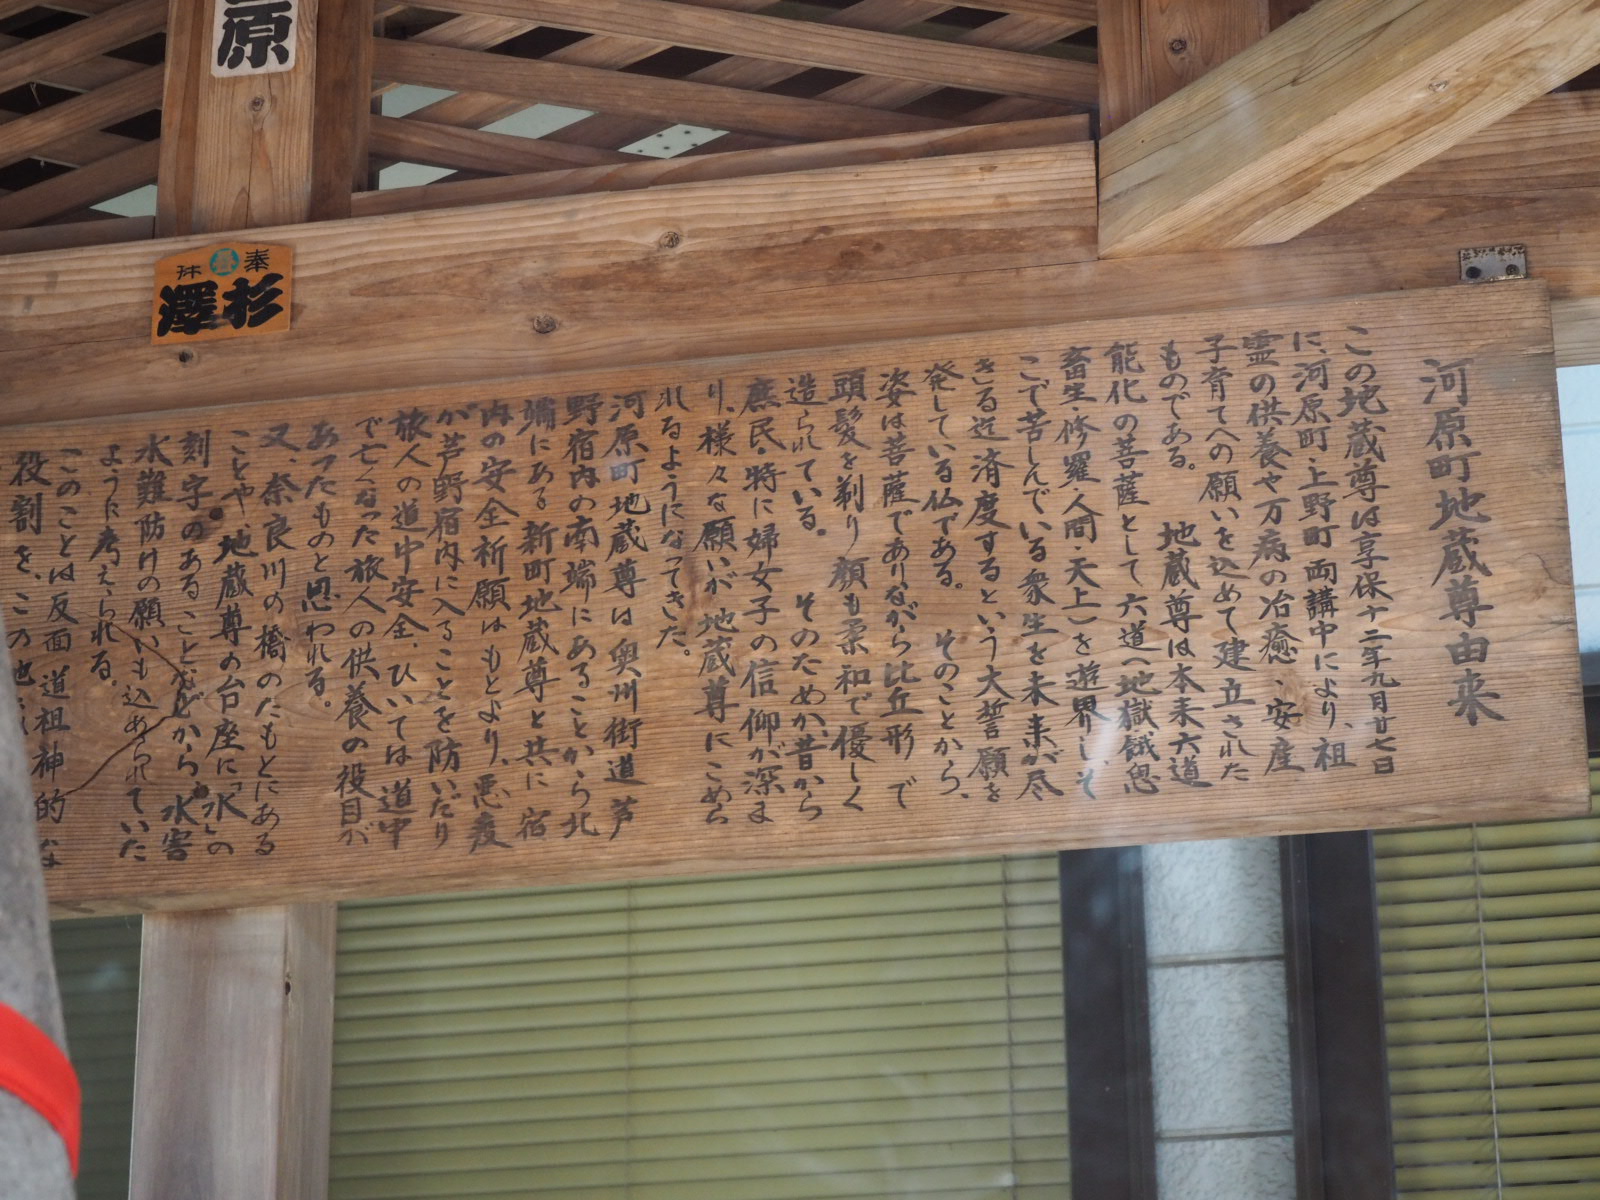 原
奉拝
杉澤
河原町地蔵尊由来
この地蔵尊は享保十二年九月廿七日
に、河原町・上野町両講中により、祖
霊の供養や万病の治癒、安産
子育てへの願いを込めて建立された
ものである。 地蔵尊は本来六道
能化の菩薩として、六道へ地獄・餓鬼
畜生・修羅・人間・天上)を遊界し、そ
こで苦しんでいる衆生を未来が尽
きる迄済度するという大誓願を
発している仏である。 そのことから、
姿は菩薩でありながら比丘形で
頭髪を剃り顔も柔和で優しく
造られている。 そのためか、昔から
庶民・特に婦女子の信仰が深ま
り、様々な願いが地蔵尊にこめら
れるようになってきた。
河原町地蔵尊は奥州街道芦
野宿内の南端にあることから北
端にある新町地蔵尊と共に宿
内の安全祈願はもとより、悪疫
が芦野宿内に入ることを防いだり
旅人の道中安全、ひいては道中
で亡くなった旅人の供養の役目が
あったものと思われる。
又、奈良川の橋のたもとにある
ことや、地蔵尊の台座に「水」の
刻字のあることなどから、水害
水難防けの願いも込められていた
ように考えられる。
このことは反面、道祖神的な
役割を、この地